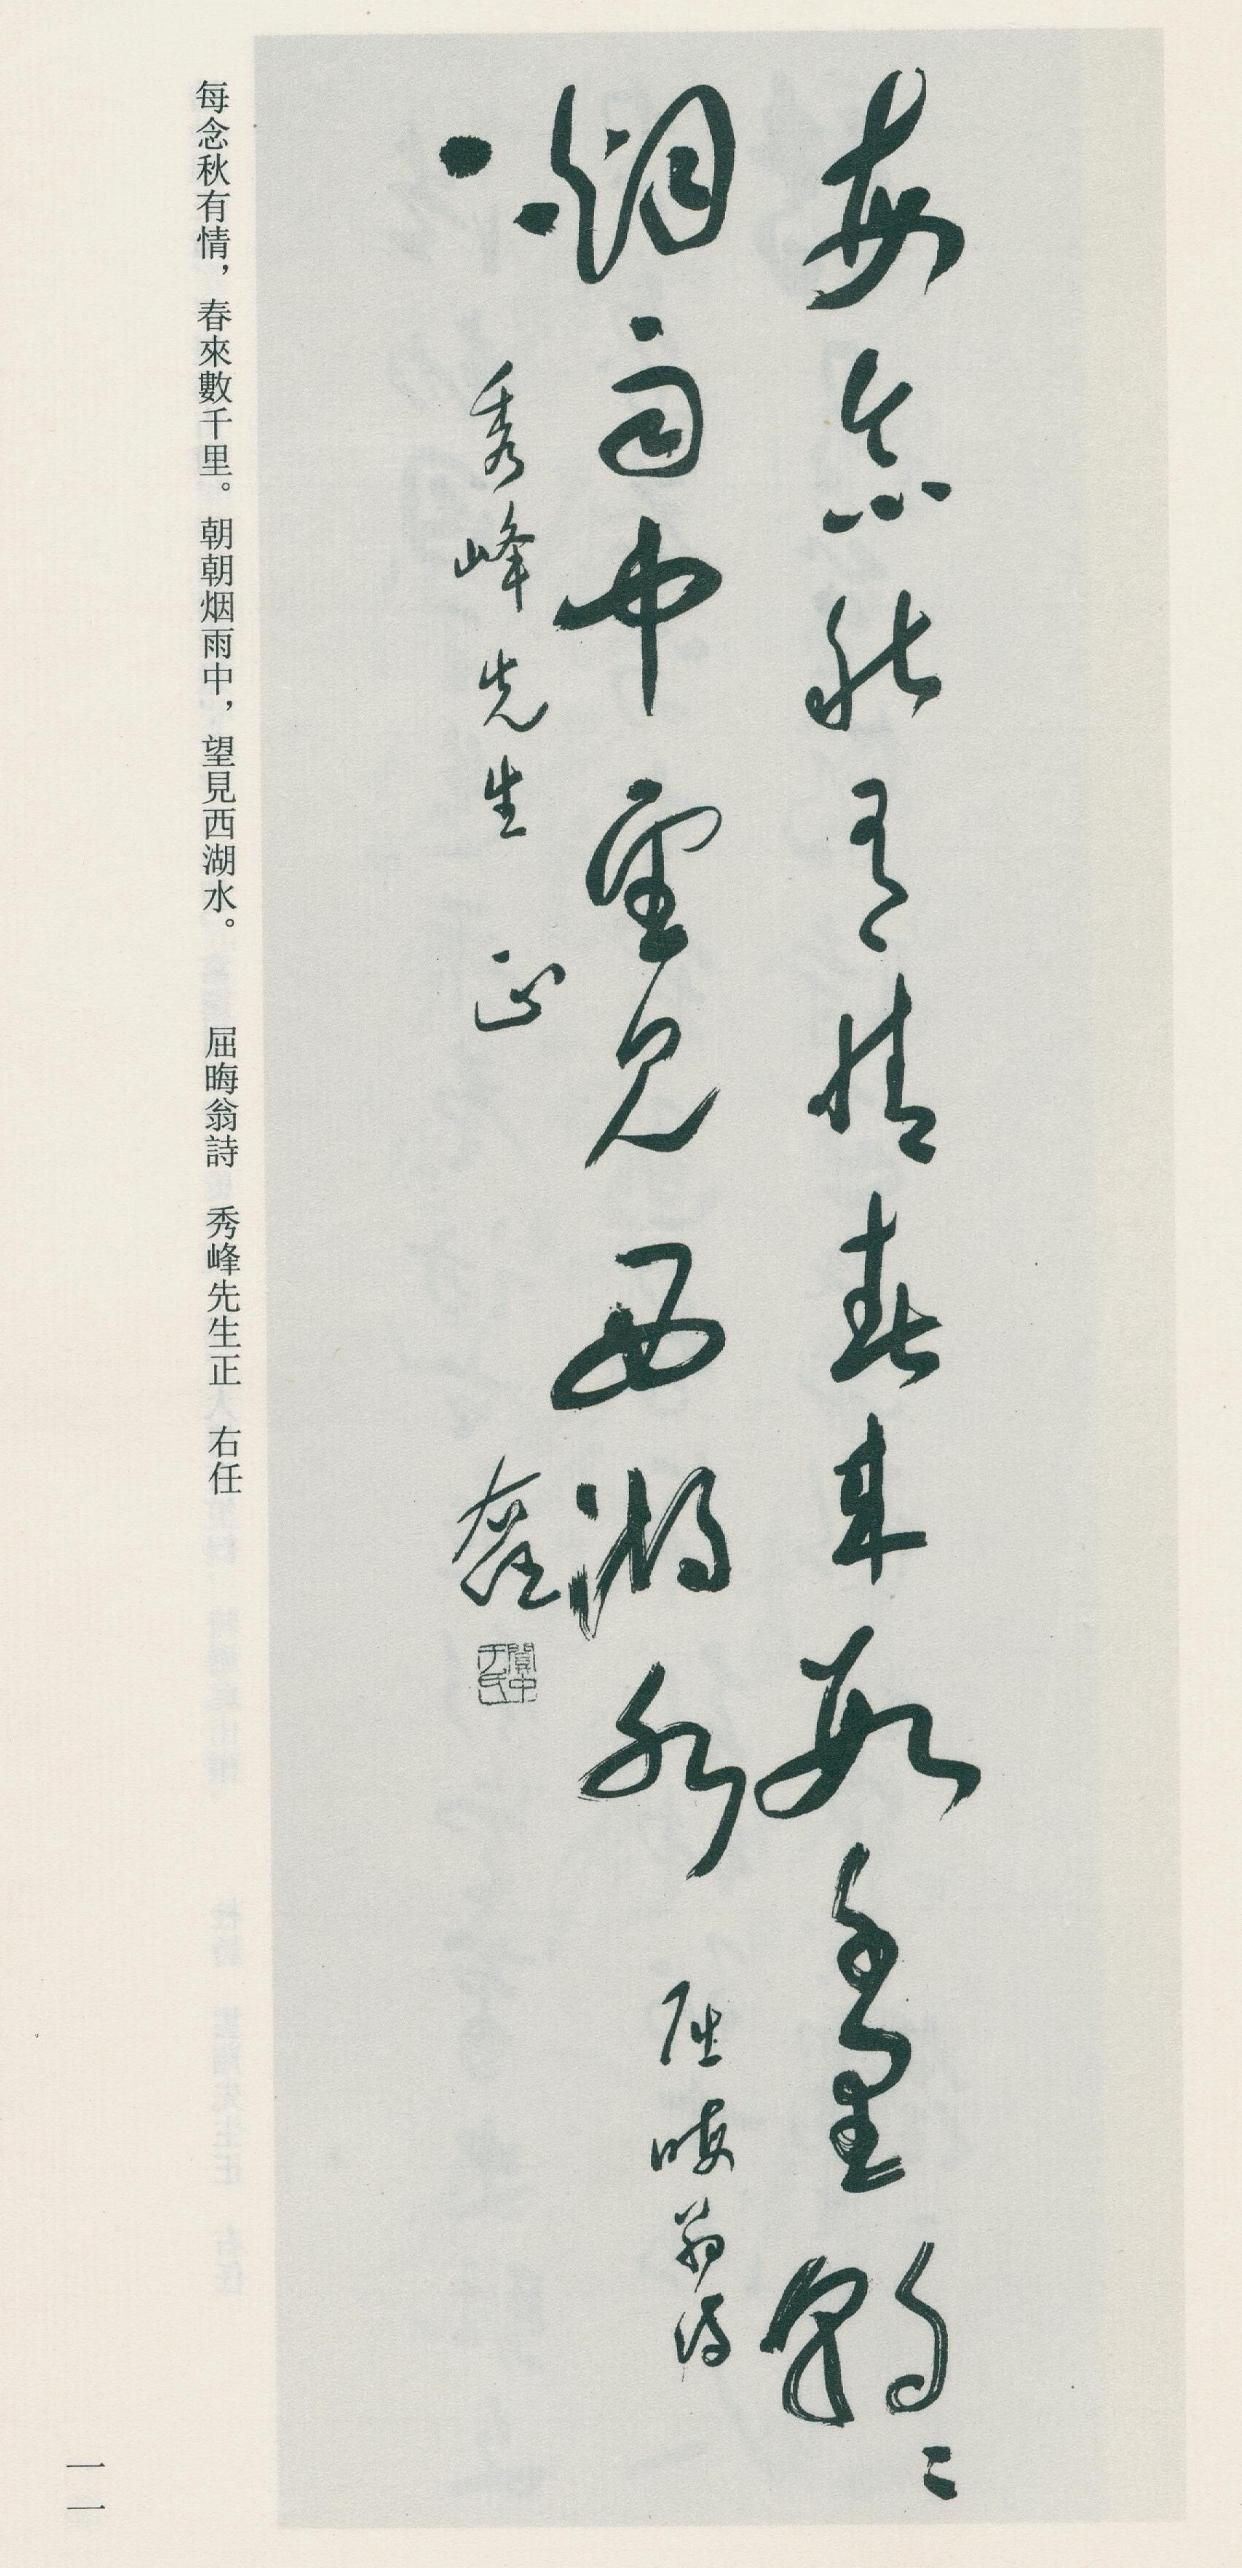 每念秋有情春來數千里朝〻
烟雨中望見西湖水 屈晦翁詩
秀峰先生 正 右任
關中于氏
每念秋有情，春來數千里。朝朝烟雨中，望見西湖水。 屈晦翁詩 秀峰先生正 右任
一一